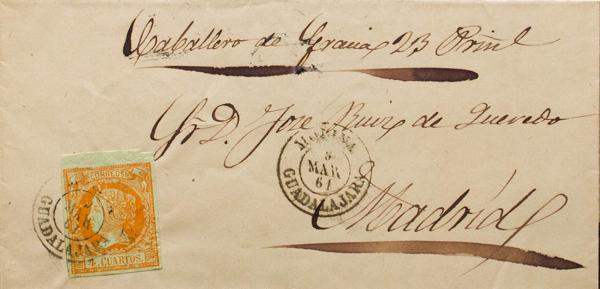 Caballero de Gracia 23 Prinl
Sr. D. Jose Ruiz de Quevedo
Madrid
MOLINA
8
MAR
61
GUADALAJARA
CORREOS
4 CUARTOS.
GUADALAJARA